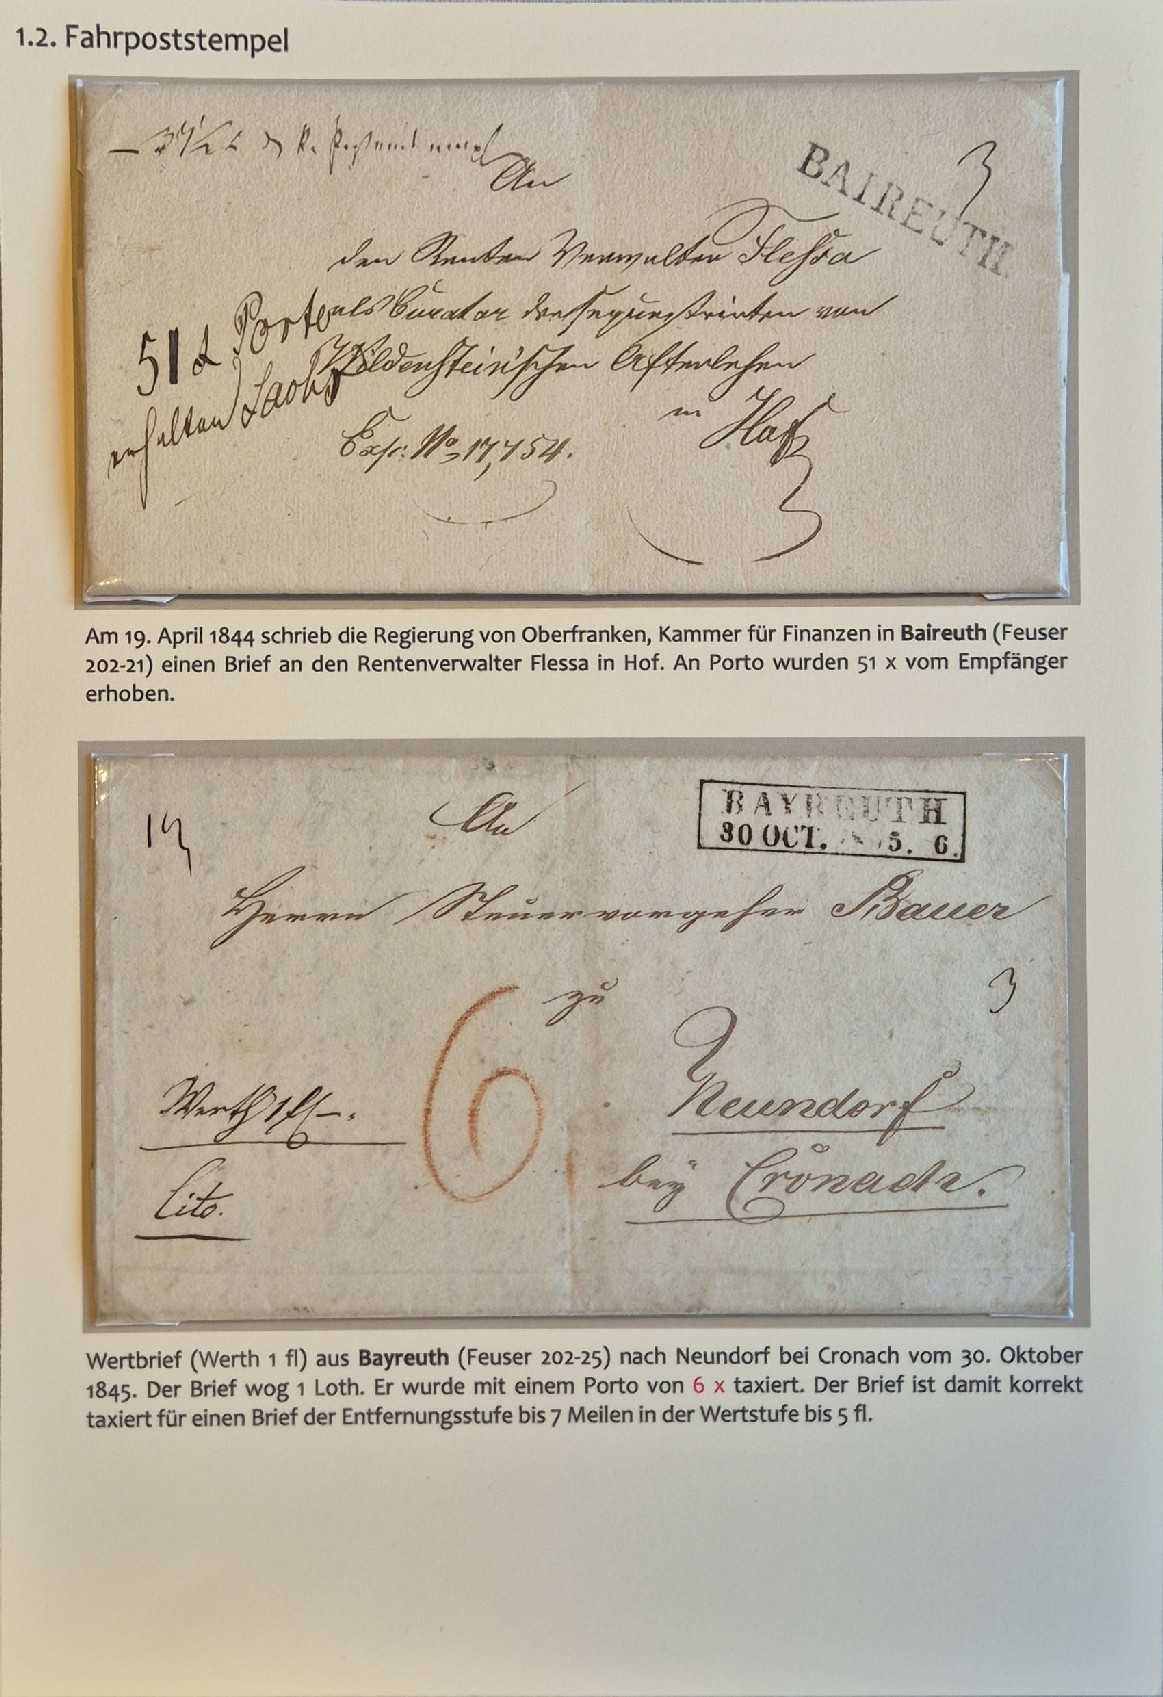 1.2. Fahrpoststempel
An
BAIREUTH.
3
den Renten Verwalter Flessa
als Curator der sequestrirten von
Wildenstein'schen Afterlehen
in Hof
51 x Porto
erhalten
Exp: No 17,754.
Am 19. April 1844 schrieb die Regierung von Oberfranken, Kammer für Finanzen in Baireuth (Feuser
202-21) einen Brief an den Rentenverwalter Flessa in Hof. An Porto wurden 51 x vom Empfänger
erhoben.
An
BAYREUTH
30 OCT. 5. 6.
Herrn Steuervorgeher Bauer
zu
3
6.
Neundorf
Werth 1 fl –.
bey Cronach.
Cito.
Wertbrief (Werth 1 fl) aus Bayreuth (Feuser 202-25) nach Neundorf bei Cronach vom 30. Oktober
1845. Der Brief wog 1 Loth. Er wurde mit einem Porto von 6 x taxiert. Der Brief ist damit korrekt
taxiert für einen Brief der Entfernungsstufe bis 7 Meilen in der Wertstufe bis 5 fl.